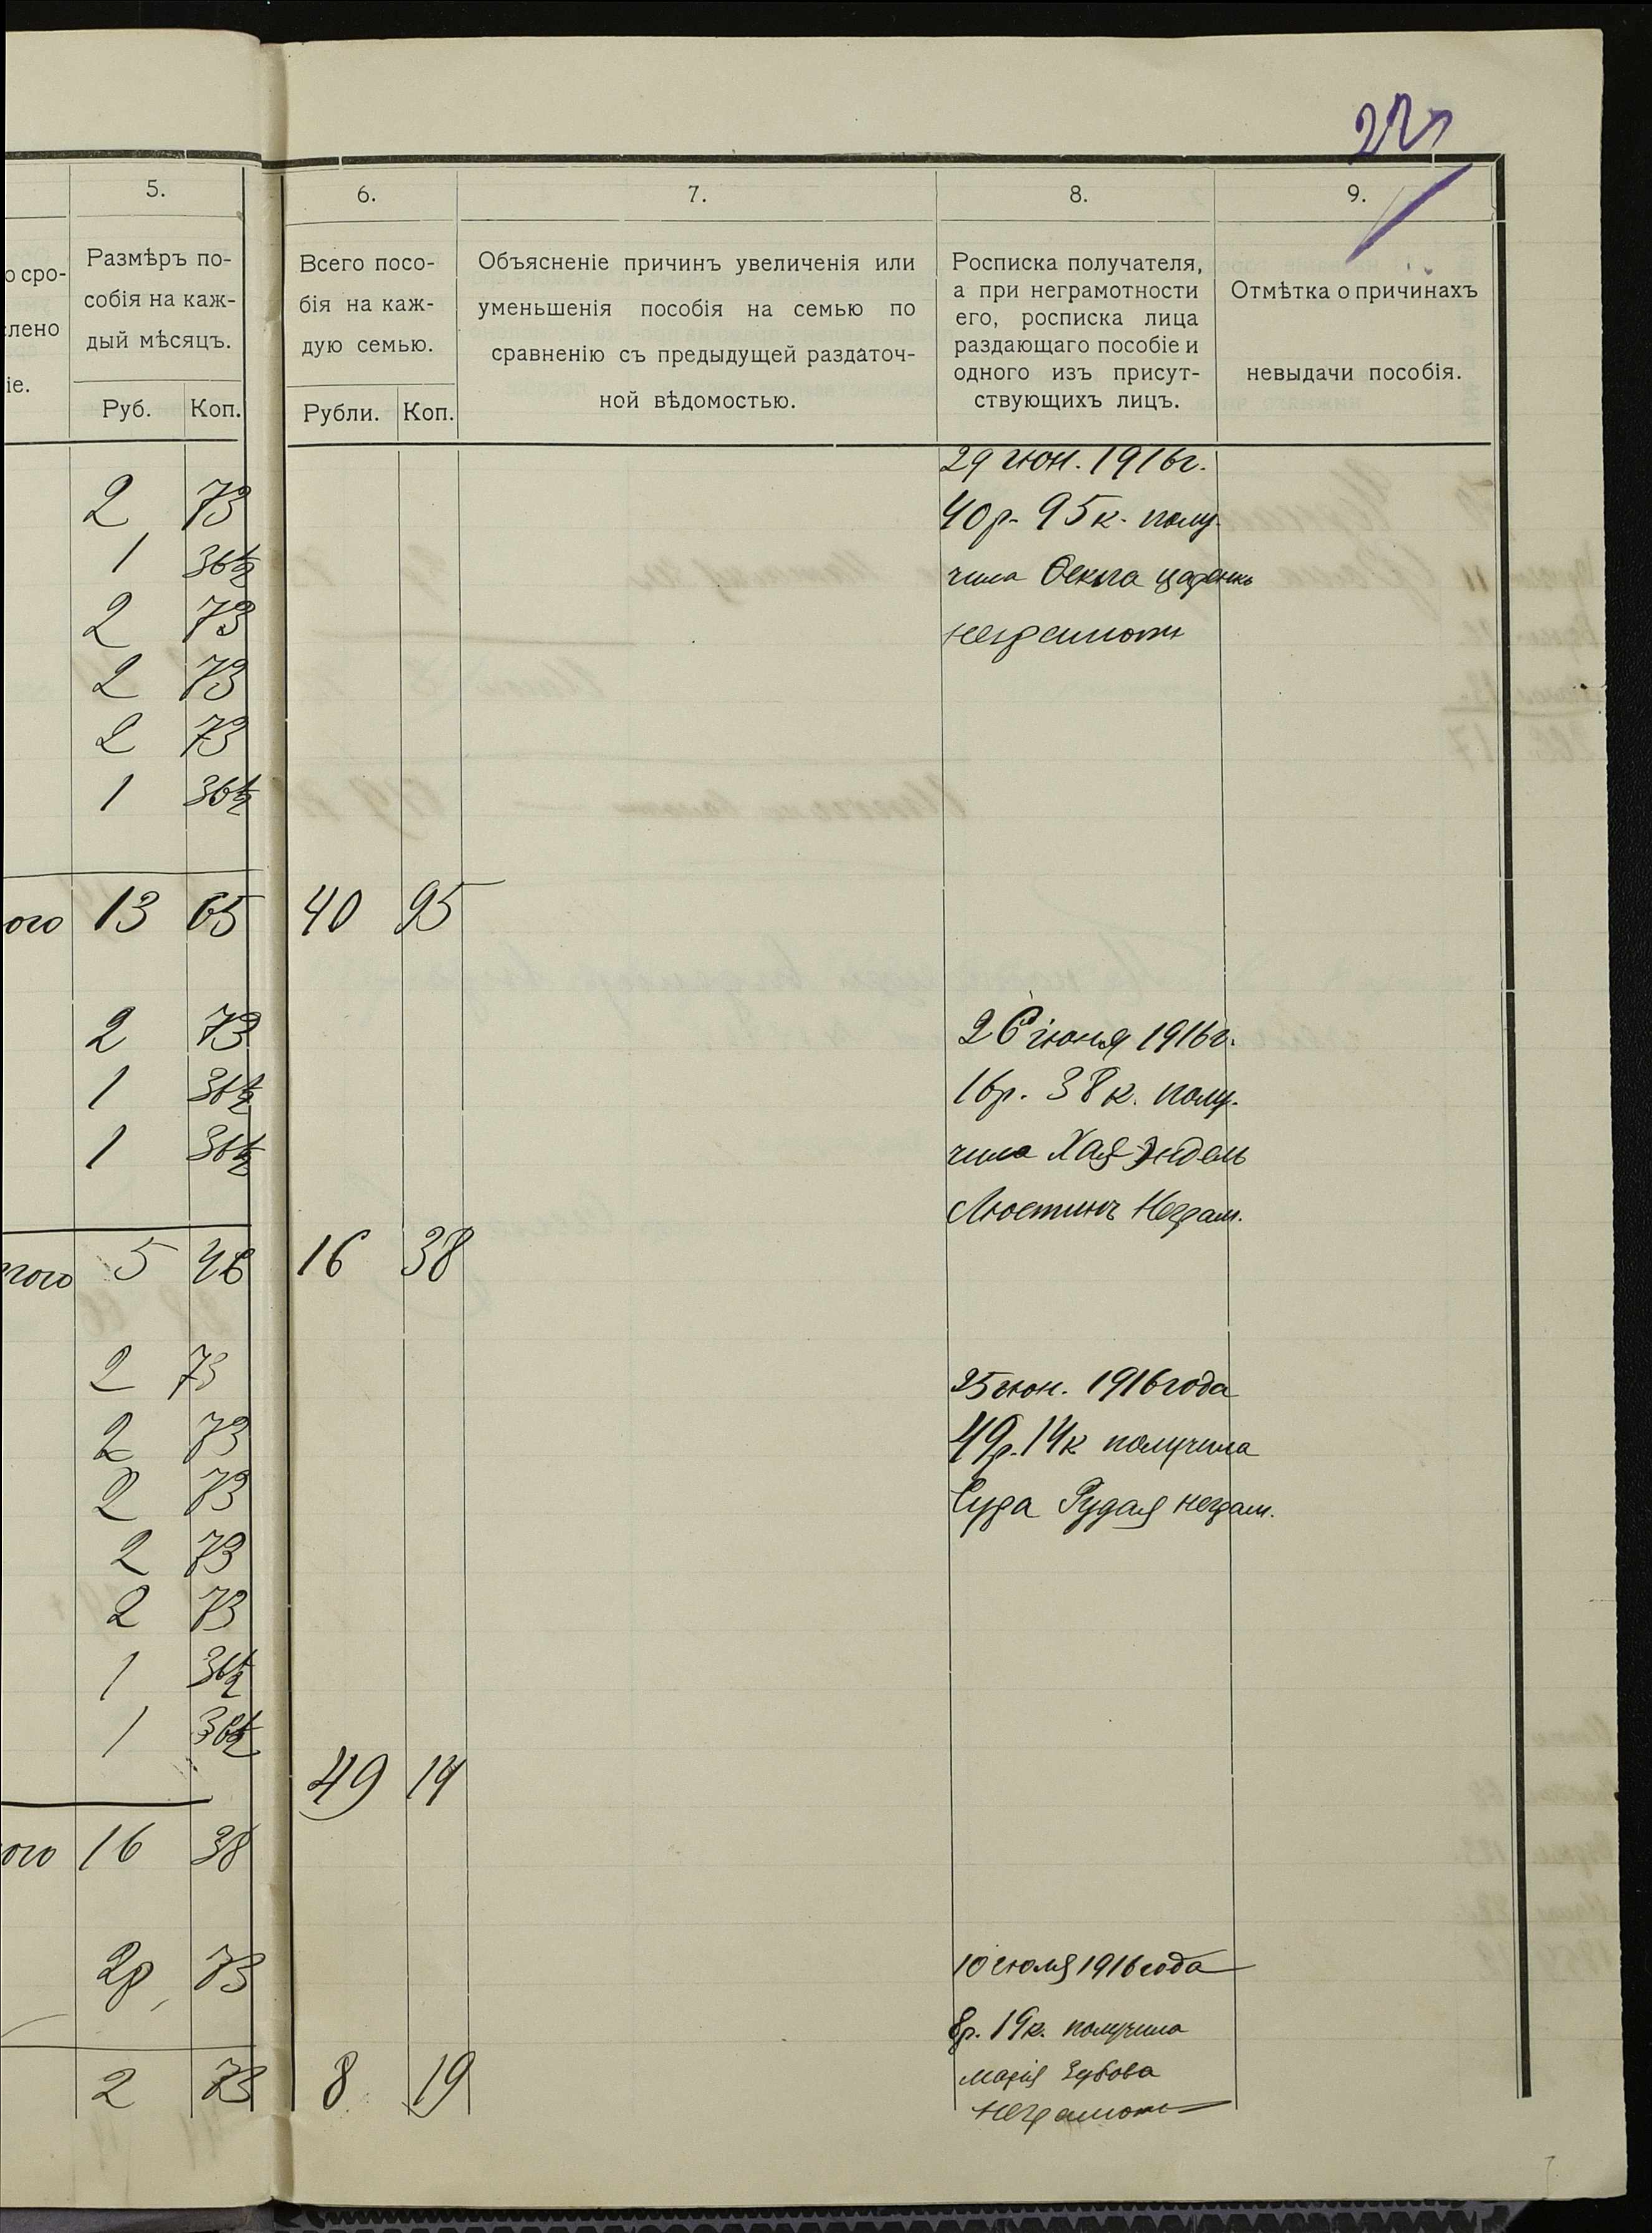 5.
6.
7.
8.
9.
о сро-
лено
іе.
Размѣръ по-
собія на каж-
дый мѣсяцъ.
Руб. Коп.
Всего посо-
бія на каж-
дую семью.
Рубли. Коп.
Объясненіе причинъ увеличенія или
уменьшенія пособія на семью по
сравненію съ предыдущей раздаточ-
ной вѣдомостью.
Росписка получателя,
а при неграмотности
его, росписка лица
раздающаго пособіе и
одного изъ присут-
ствующихъ лицъ.
Отмѣтка о причинахъ
невыдачи пособія.
29 іюн. 1916г.
2 73 40р. 95к. полу-
1 36½ чила
2 73 неграмотн
2 73
2 73
1 36½
ого 13 65 40 95
2 73 26 іюня 1916г.
1 36½ 16р. 38к. полу-
1 36½ чила Хая Эндель
Люстинъ Неграм.
того 5 46 16 38
2 73 25 іюн. 1916 года
2 73 49р. 14к получила
2 73 Сура Рудая неграм.
2 73
2 73
1 36½
1 36½
49 14
ого 16 38
2р 73 10 іюля 1916 года
8р. 19к. получила
2 73 8 19 Марія Зубова
Неграмотн